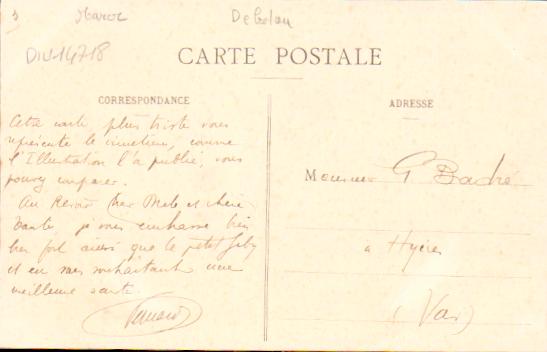 Maroc Debdou
DIV-14718
CARTE POSTALE
CORRESPONDANCE
Cette carte, plus triste vous
représente le cimetière, comme
l'Illustration l'a publié, vous
pouvez comparer.
Au Revoir cher et chère
tante, je vous embrasse bien
fort ainsi que le petit
et en vous souhaitant une
meilleure santé.
ADRESSE
Monsieur G Badré
à Hyères
(Var)